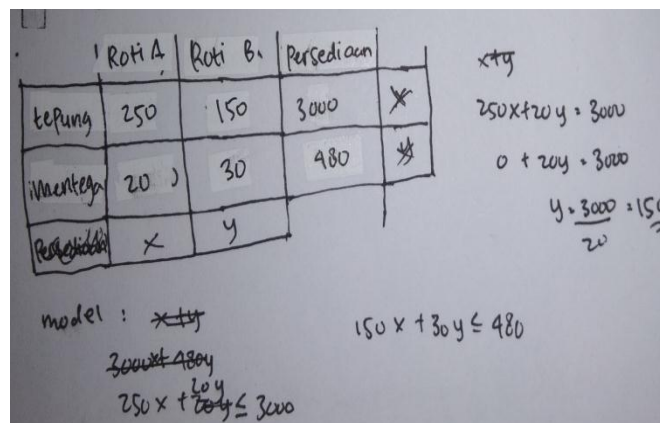 Roti A Roti B. Persediaan
tepung 250 150 3000 x
mentega 20 30 480 y
Persediaan x y
x+y
250x+20y = 3000
0 + 20y = 3000
y = 3000/20 = 150
model : x+y
3000x+480y
250x + 20y ≤ 3000
20y
150x + 30y ≤ 480